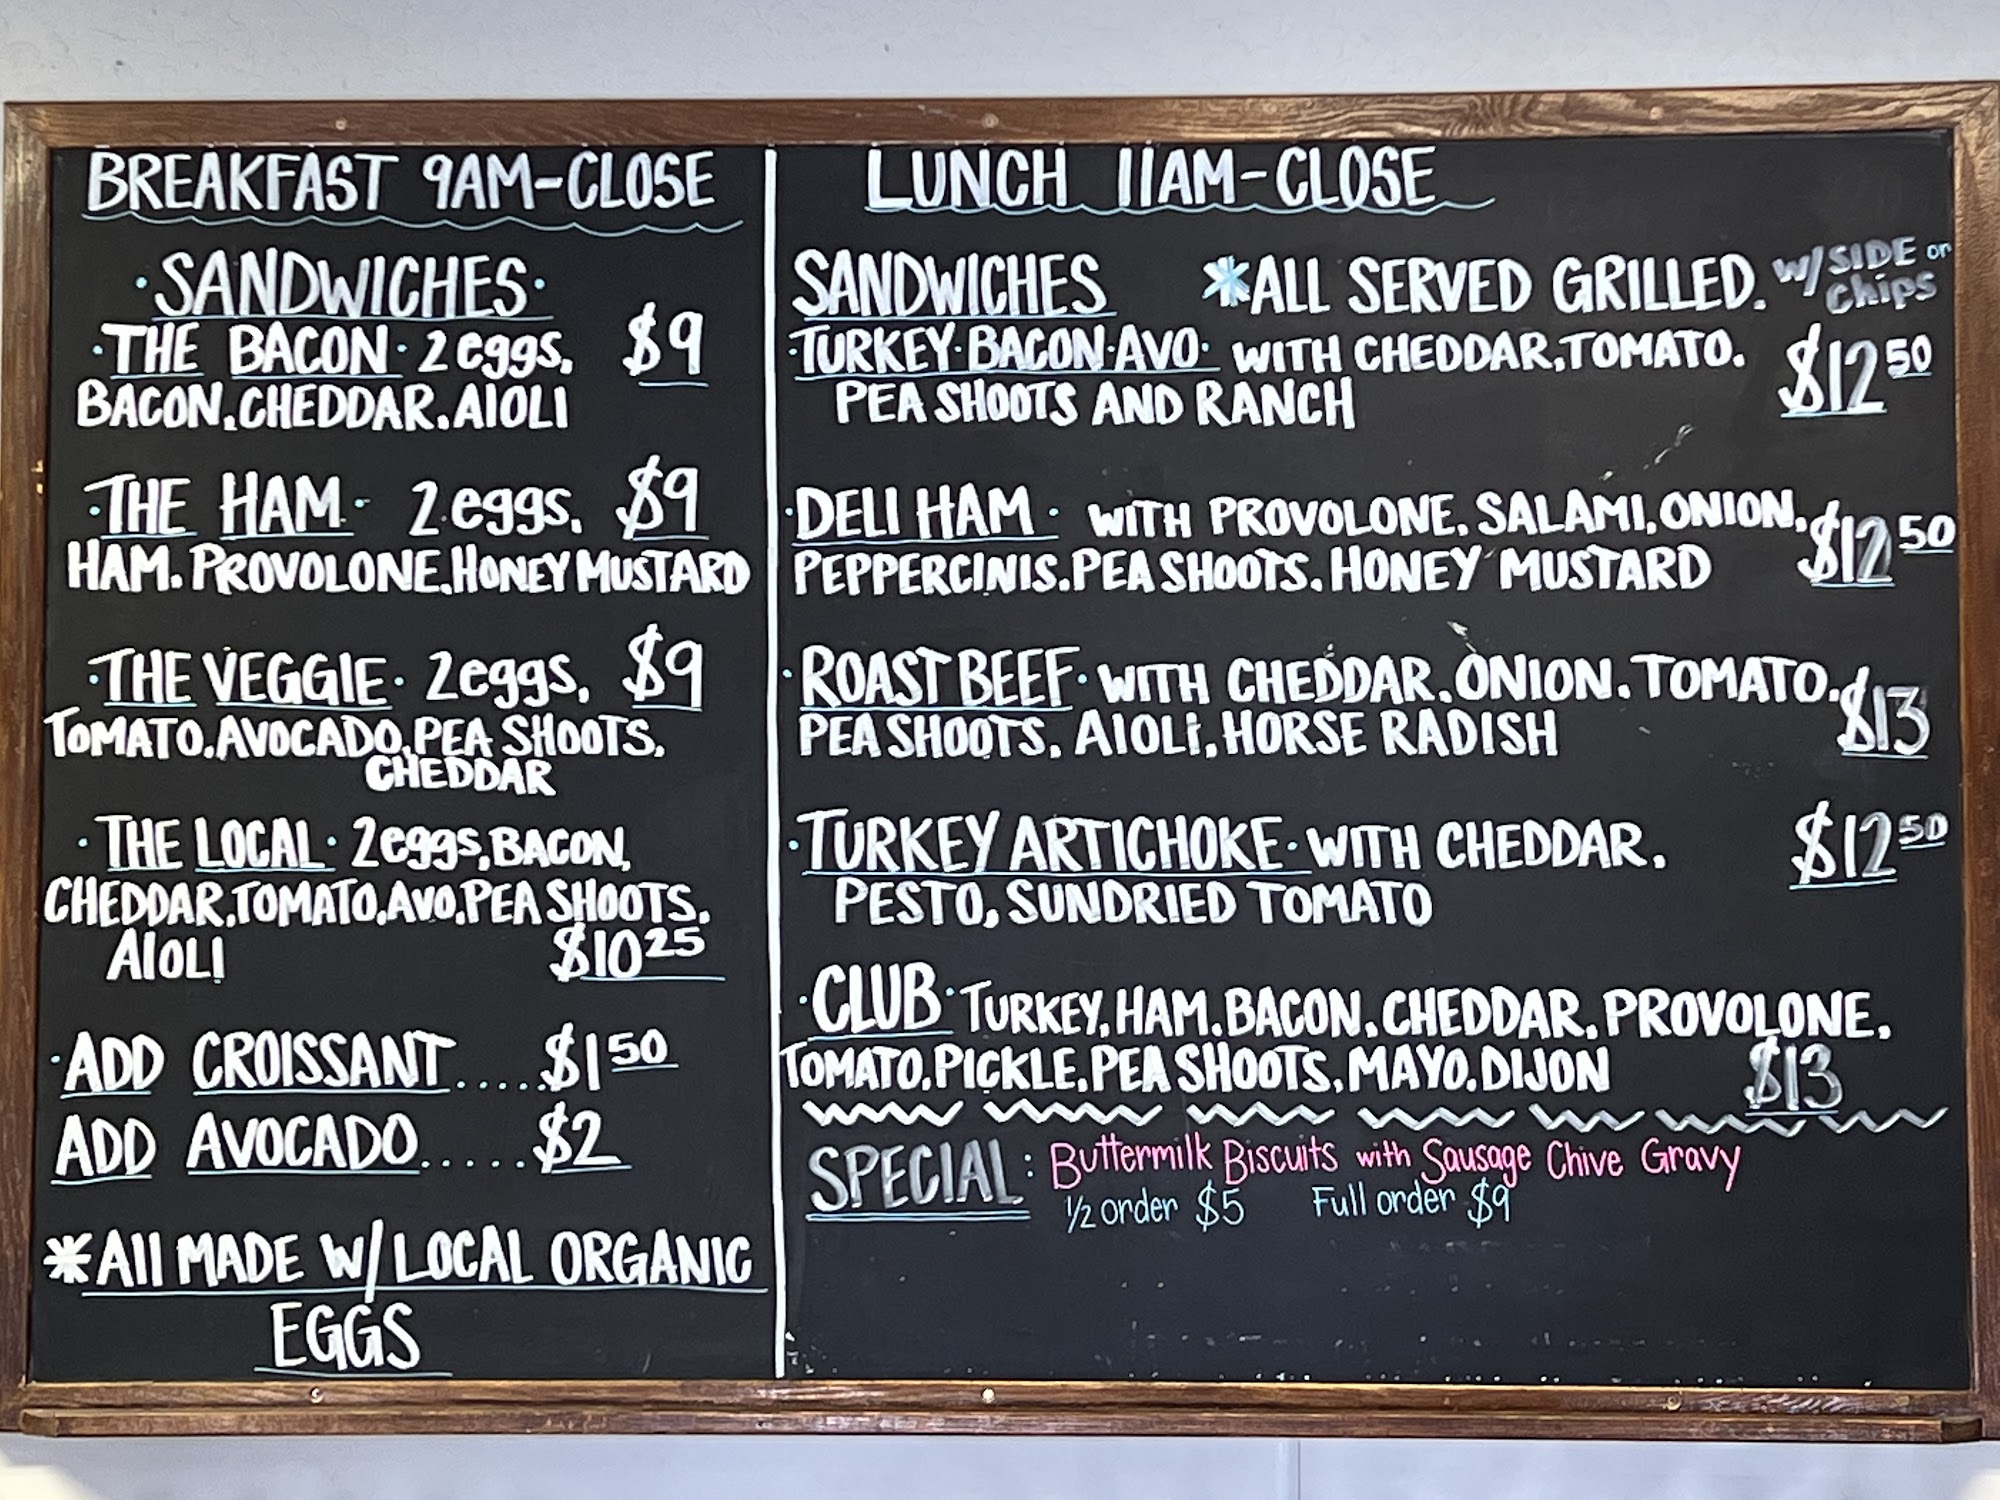 BREAKFAST 9AM-CLOSE
·SANDWICHES·
·THE BACON· 2 eggs, $9
BACON, CHEDDAR, AIOLI
·THE HAM· 2 eggs, $9
HAM, PROVOLONE, HONEY MUSTARD
·THE VEGGIE· 2 eggs, $9
TOMATO, AVOCADO, PEA SHOOTS,
CHEDDAR
·THE LOCAL· 2 eggs, BACON,
CHEDDAR, TOMATO, AVO, PEA SHOOTS,
AIOLI $10 25
·ADD CROISSANT.....$1 50
ADD AVOCADO.....$2
*All MADE W/ LOCAL ORGANIC
EGGS
LUNCH 11AM-CLOSE
SANDWICHES *ALL SERVED GRILLED. W/ SIDE or
Chips
·TURKEY·BACON·AVO· WITH CHEDDAR, TOMATO. $12 50
PEA SHOOTS AND RANCH
·DELI HAM· WITH PROVOLONE, SALAMI, ONION, $12 50
PEPPERCINIS, PEA SHOOTS, HONEY MUSTARD
·ROAST BEEF· WITH CHEDDAR, ONION, TOMATO, $13
PEA SHOOTS, AIOLI, HORSE RADISH
·TURKEY ARTICHOKE· WITH CHEDDAR, $12 50
PESTO, SUNDRIED TOMATO
·CLUB· TURKEY, HAM, BACON, CHEDDAR, PROVOLONE,
TOMATO, PICKLE, PEA SHOOTS, MAYO, DIJON $13
SPECIAL: Buttermilk Biscuits with Sausage Chive Gravy
1/2 order $5 Full order $9